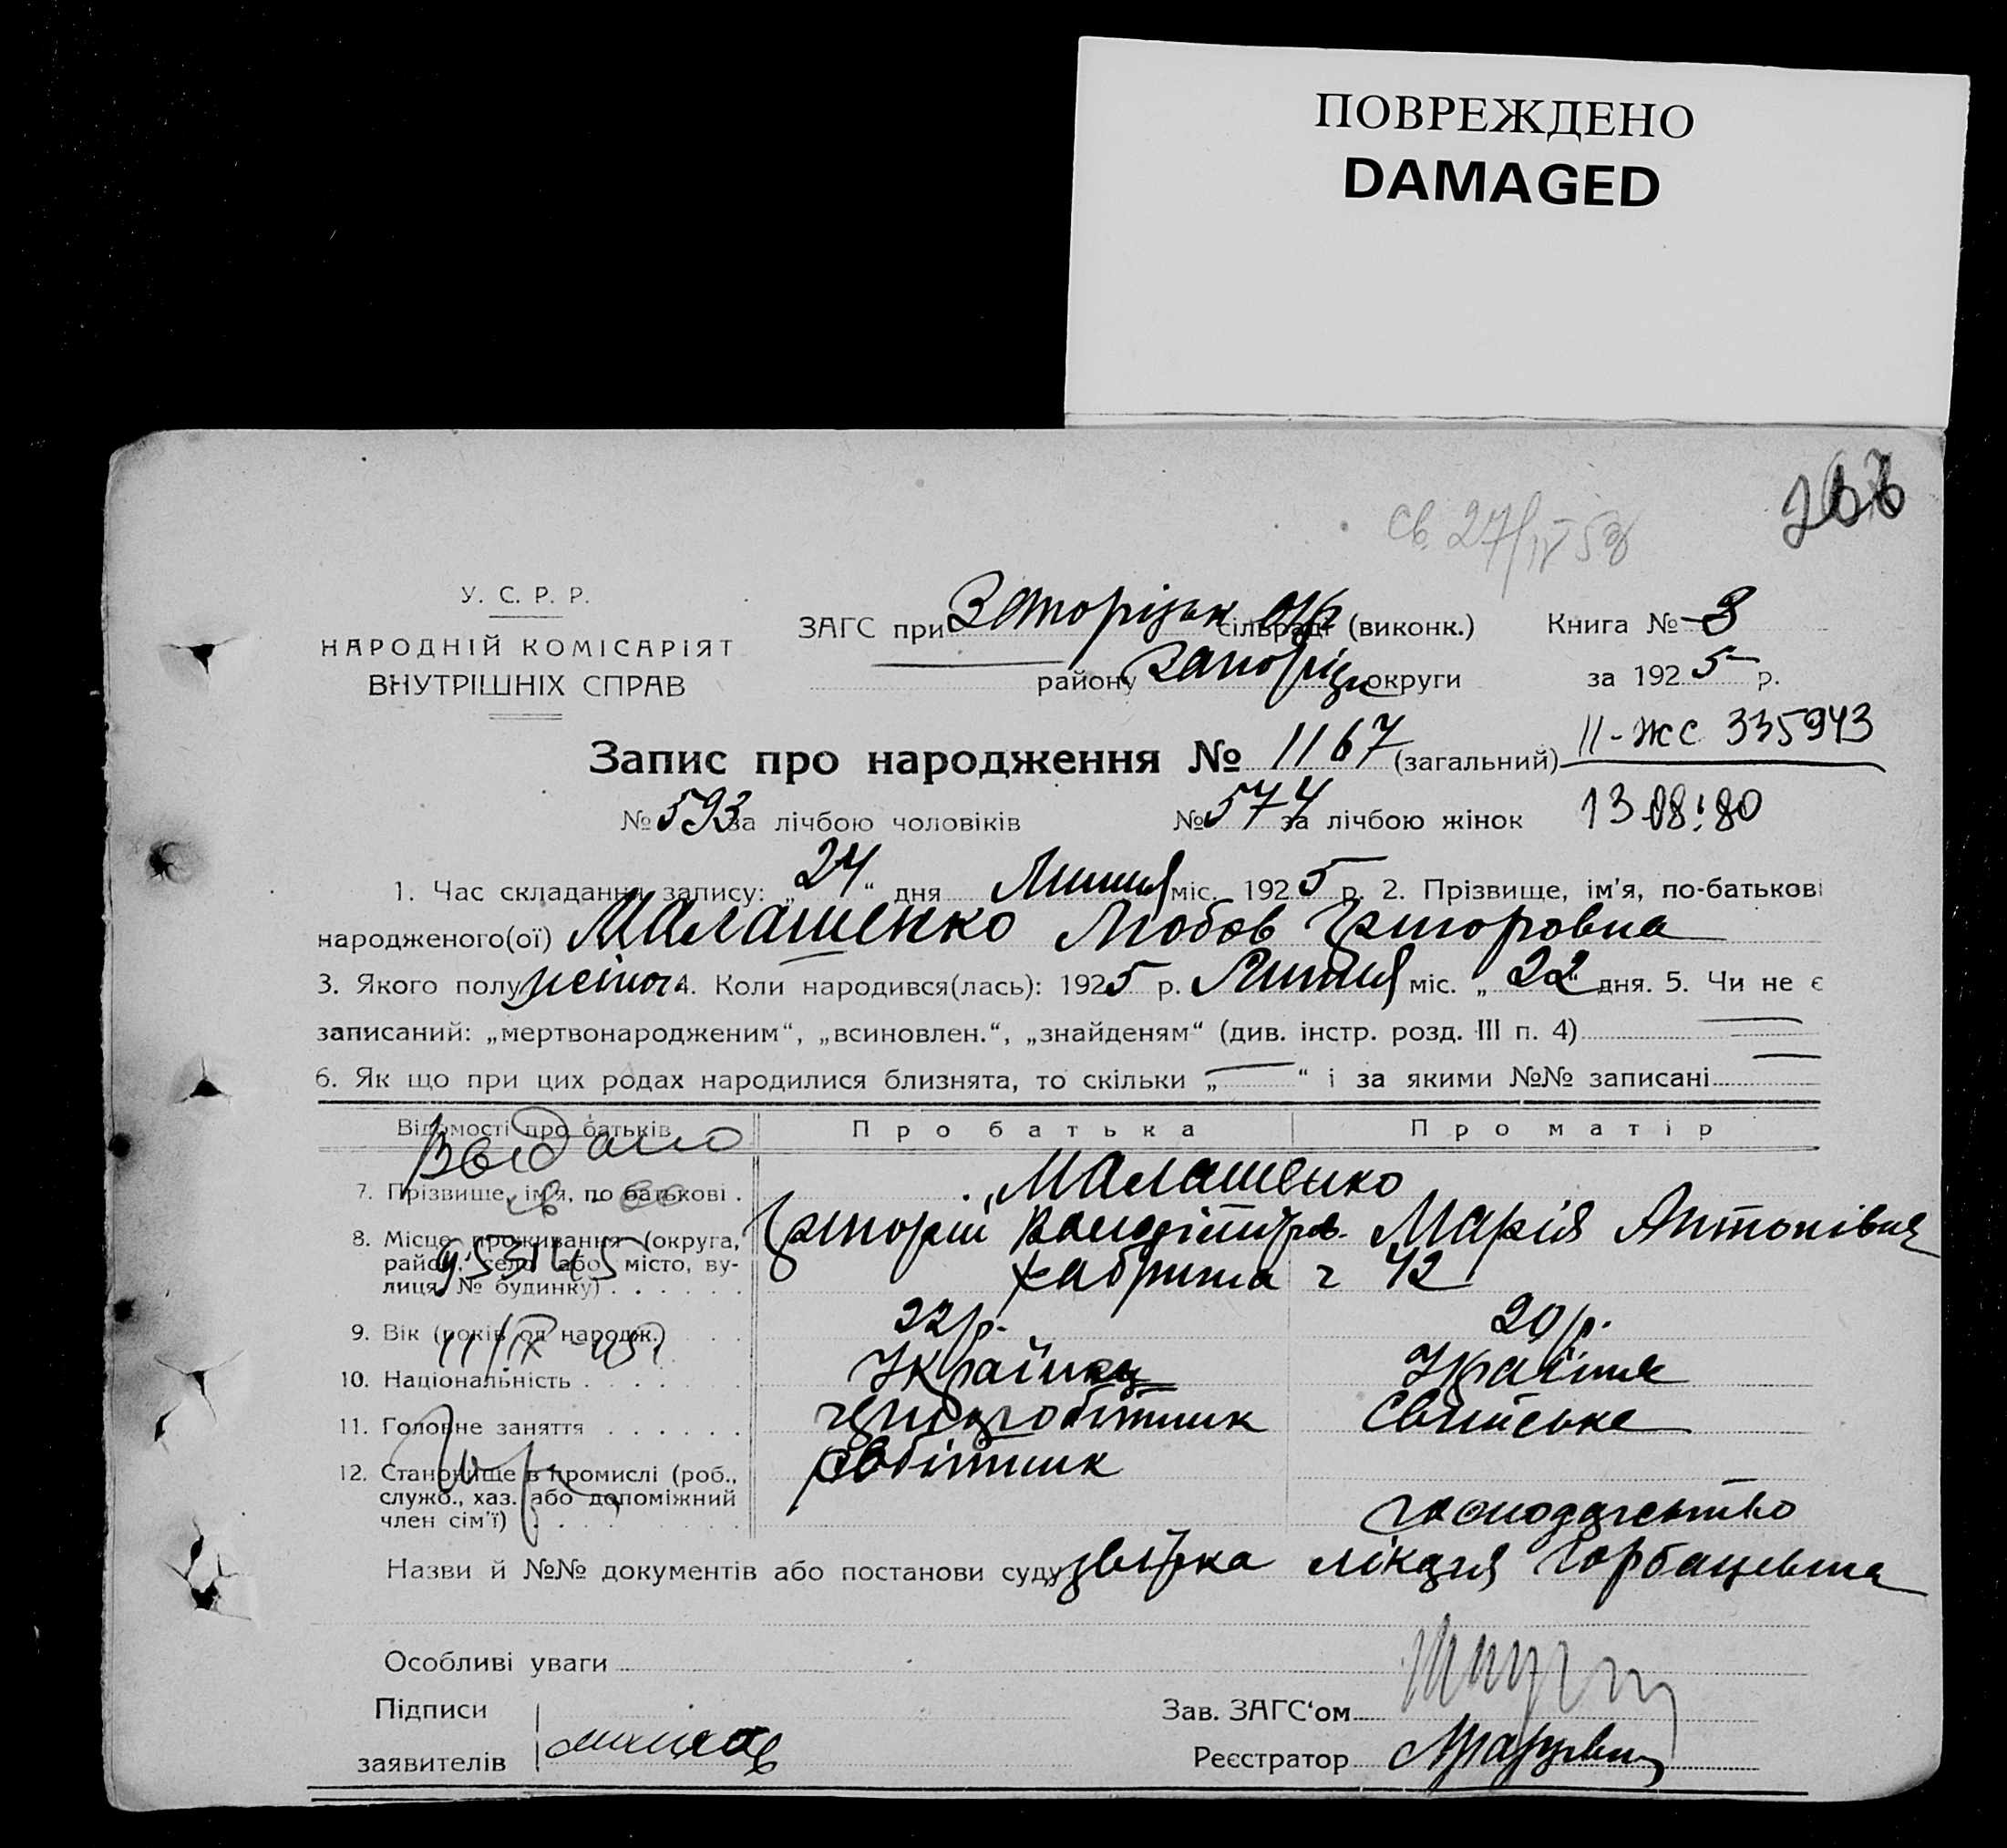 ПОВРЕЖДЕНО
DAMAGED
Св. 27/IV 58
У. С. Р. Р.
НАРОДНІЙ КОМІСАРІЯТ
ВНУТРІШНІХ СПРАВ
ЗАГС при Запорізьк окр сільраді (виконк.) Книга № 3
району Запоріз округи за 1925 р.
Запис про народження № 1167 (загальний) II-ЖС 335943
№ 593 за лічбою чоловіків № 574 за лічбою жінок 13.08.80
1. Час складання запису: „24“ дня Липня міс. 1925 р. 2. Прізвище, ім'я, по-батькові
народженого(ої) Малашенко Любов Григоровна
3. Якого полу жіноч 4. Коли народився(лась): 1925 р. Липня міс. „22“ дня. 5. Чи не є
записаний: „мертвонародженим“, „всиновлен.“, „знайденям“ (див. інстр. розд. III п. 4)
6. Як що при цих родах народилися близнята, то скільки „ “ і за якими №№ записані
Відомості про батьків Про батька Про матір
Выдано
7. Прізвище, ім'я, по батькові Малашенко
Григорій Марія Антонівна
8. Місце проживання (округа, район, село або місто, вулиця, № будинку) ч 42
9. Вік (років од народж.) 22 р. 20 р.
10. Національність Українец Українка
11. Головне заняття чорноробітник Свійське
12. Становище в промислі (роб., служб., хаз. або допоміжний член сім'ї) робітник
господарство
Назви й №№ документів або постанови суду звістка лікаря
Особливі уваги
Підписи
заявителів
Зав. ЗАГС'ом
Реєстратор